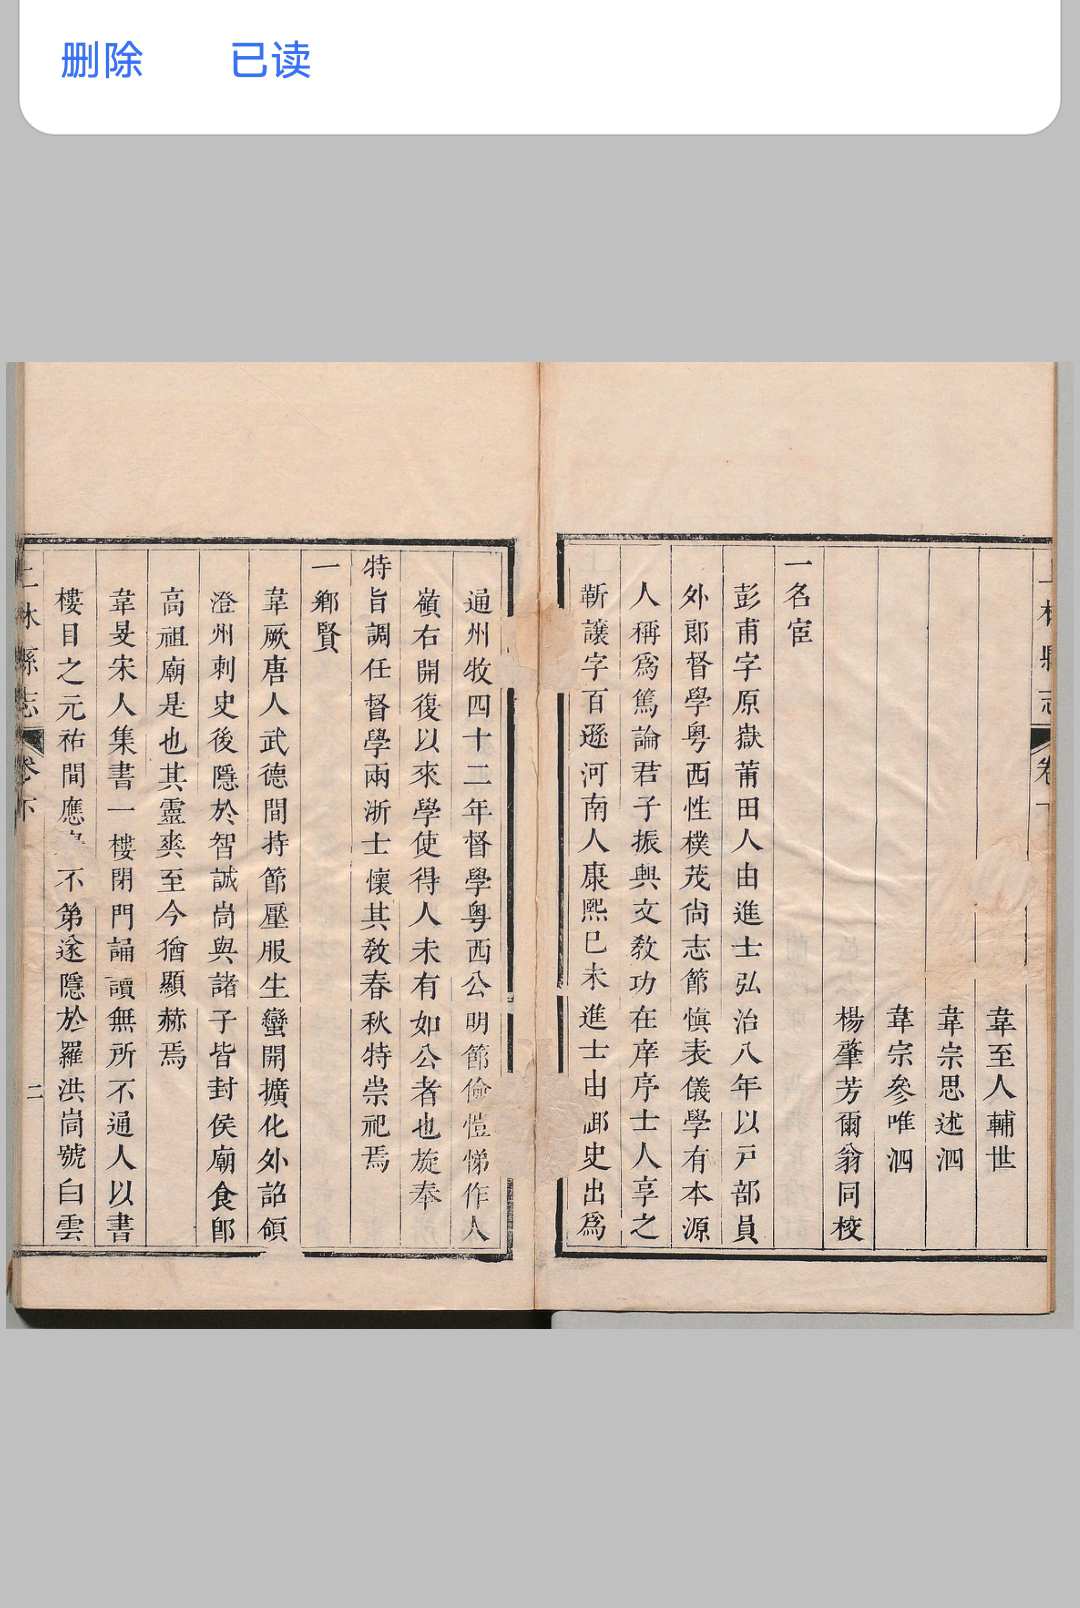 删除 已读
韋至人輔世
韋宗思述泗
韋宗參唯泗
楊肇芳爾翁同校
一名宦
彭甫字原嶽莆田人由進士弘治八年以戸部員
外郎督學粤西性樸茂尙志節愼表儀學有本源
人稱爲篤論君子振興文敎功在庠序士人享之
靳讓字百遜河南人康熙已未進士由邮史出爲
通州牧四十二年督學粤西公明節儉愷悌作人
嶺右開復以來學使得人未有如公者也旋奉
特旨調任督學兩浙士懷其敎春秋特崇祀焉
一鄉賢
韋厥唐人武德間持節壓服生蠻開擴化外詔領
澄州刺史後隱於智誠峝與諸子皆封侯廟食卽
高祖廟是也其靈爽至今猶顯赫焉
韋旻宋人集書一樓閉門誦讀無所不通人以書
樓目之元祐間應 不第遂隱於羅洪峝號白雲
林縣志 卷下 二